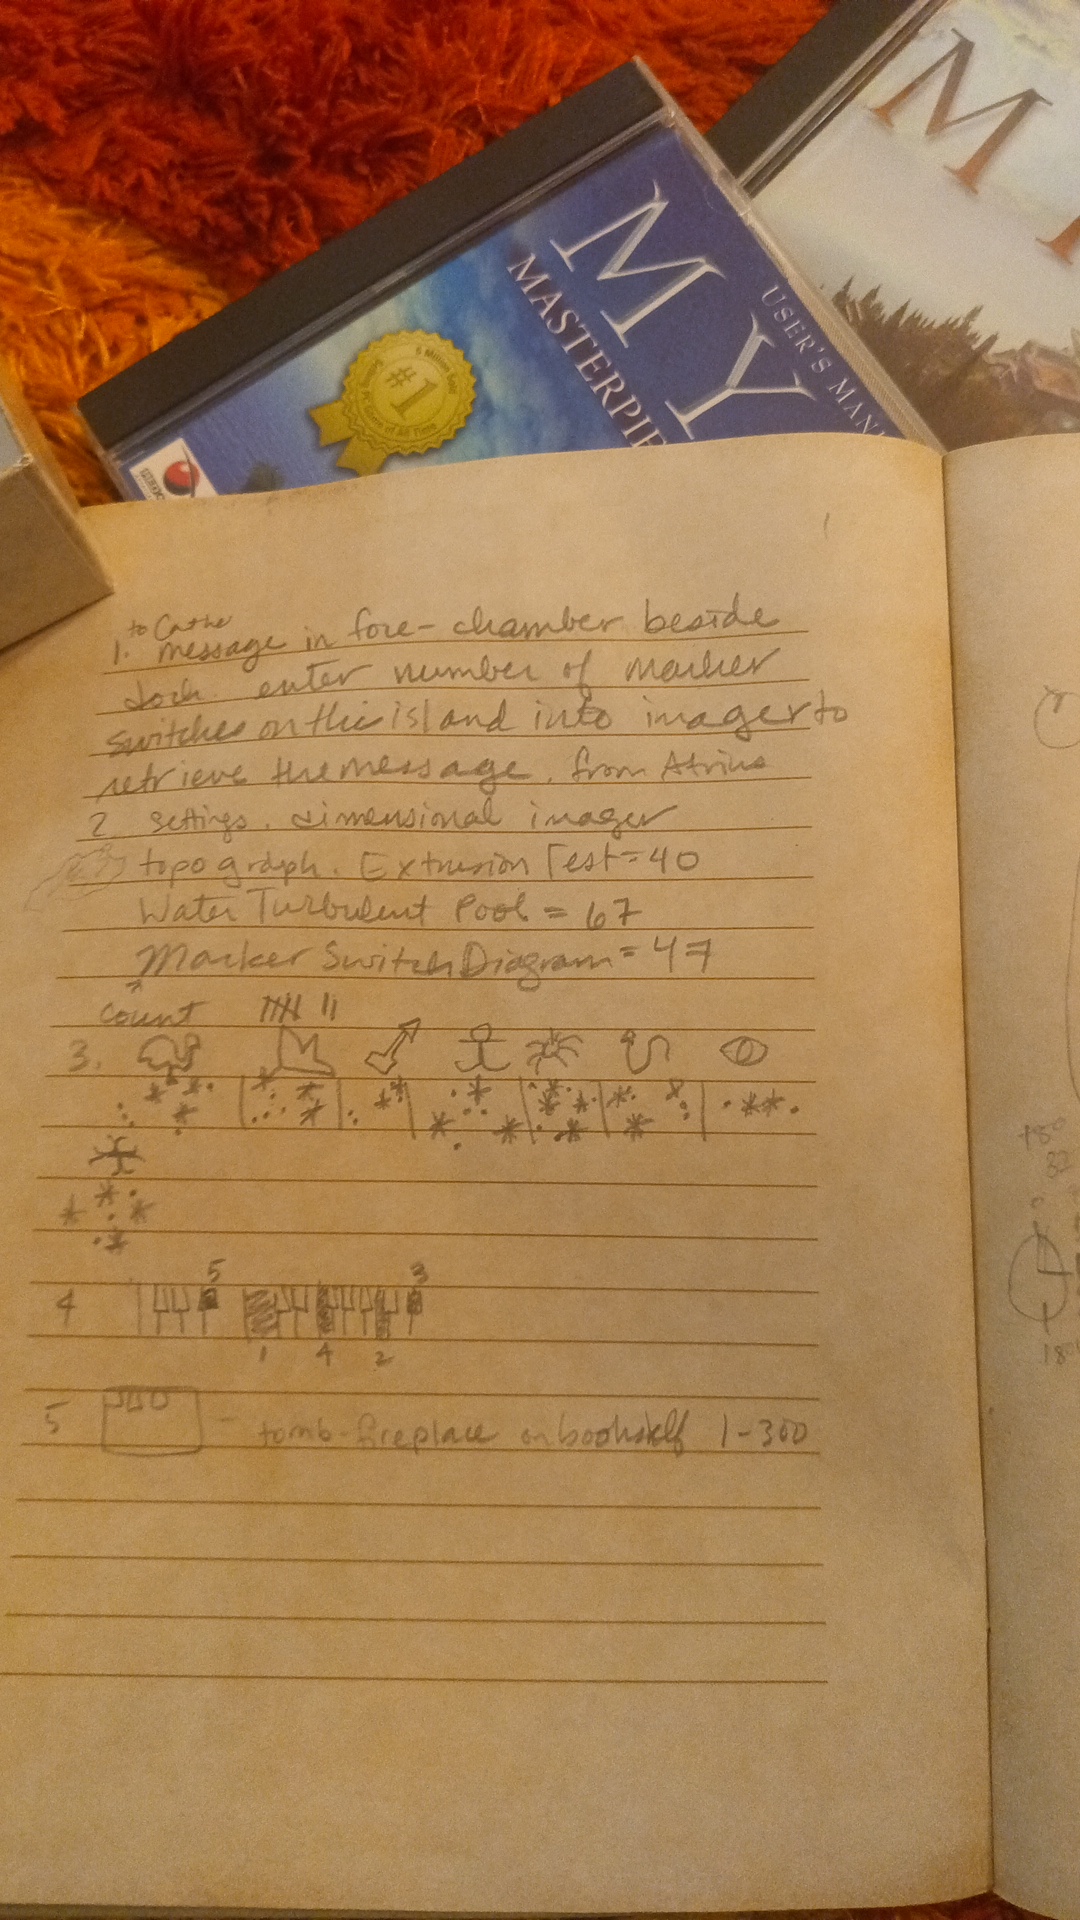 M
M
MY
USER'S MANU
MASTERPIE
#1
1
to Cathe
1. message in fore-chamber beside
dock. enter number of marker
switches on this island into imager to
retrieve the message. from Atrius
2 settings. dimensional imager
topograph. Extrusion Test=40
Water Turbulent Pool = 67
Marker Switch Diagram=47
count
3.
4
5
3
1 4 2
5 - tomb-fireplace on bookshelf 1-300